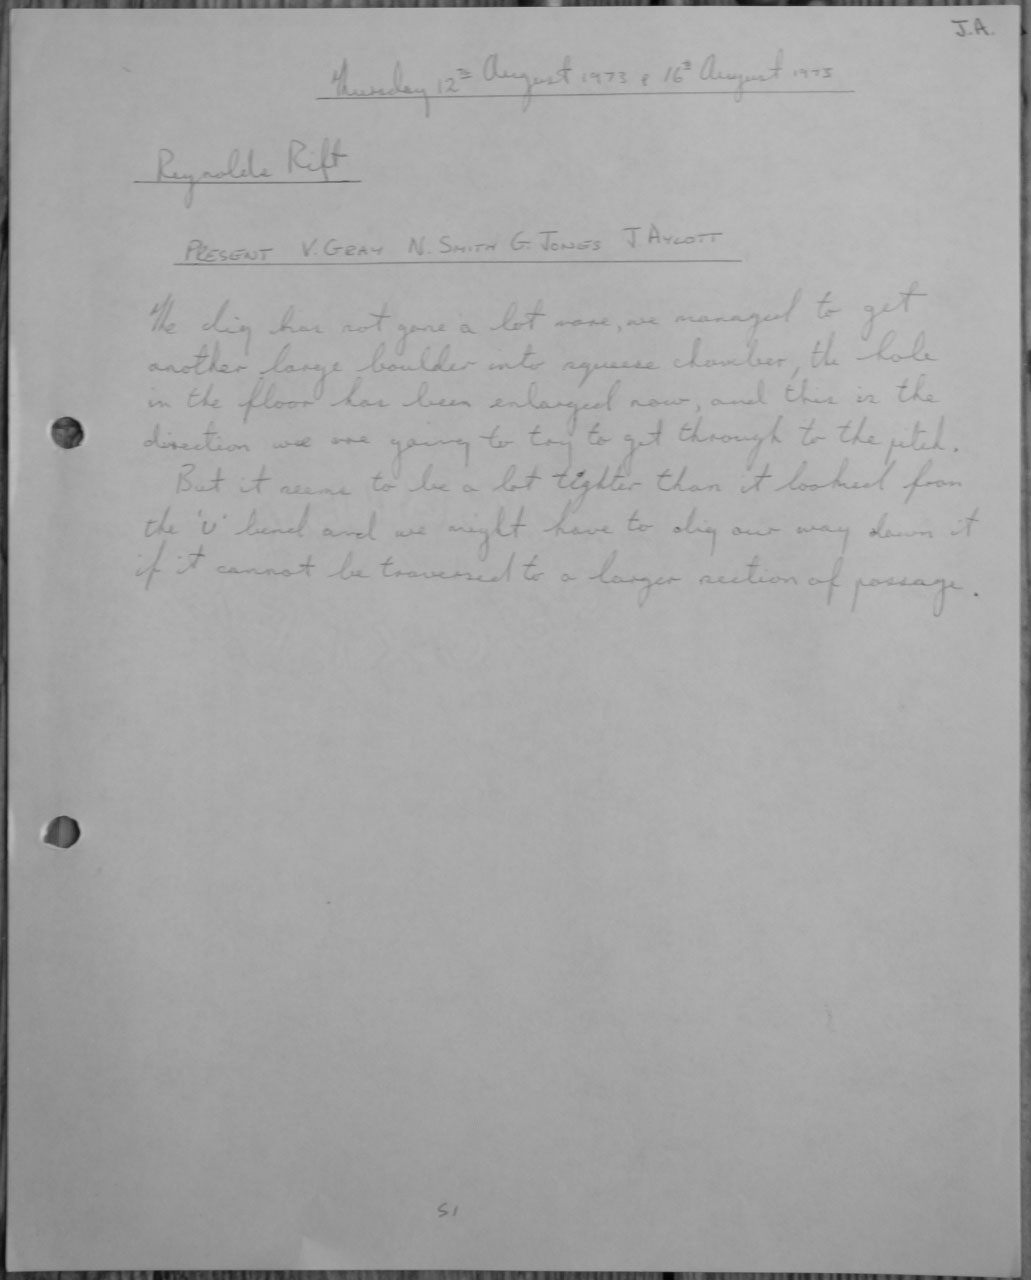 J.A.
Thursday 12th August 1973 & 16th August 1973
Reynolds Rift
PRESENT V. GRAY N. SMITH G. JONES J. AYLOTT
The dig has not gone a lot more, we managed to get
another large boulder into squeeze chamber, the hole
in the floor has been enlarged now, and this is the
direction we are going to try to get through to the pitch.
But it seems to be a lot tighter than it looked from
the 'U' bend and we might have to dig our way down it
if it cannot be traversed to a larger section of passage.
51